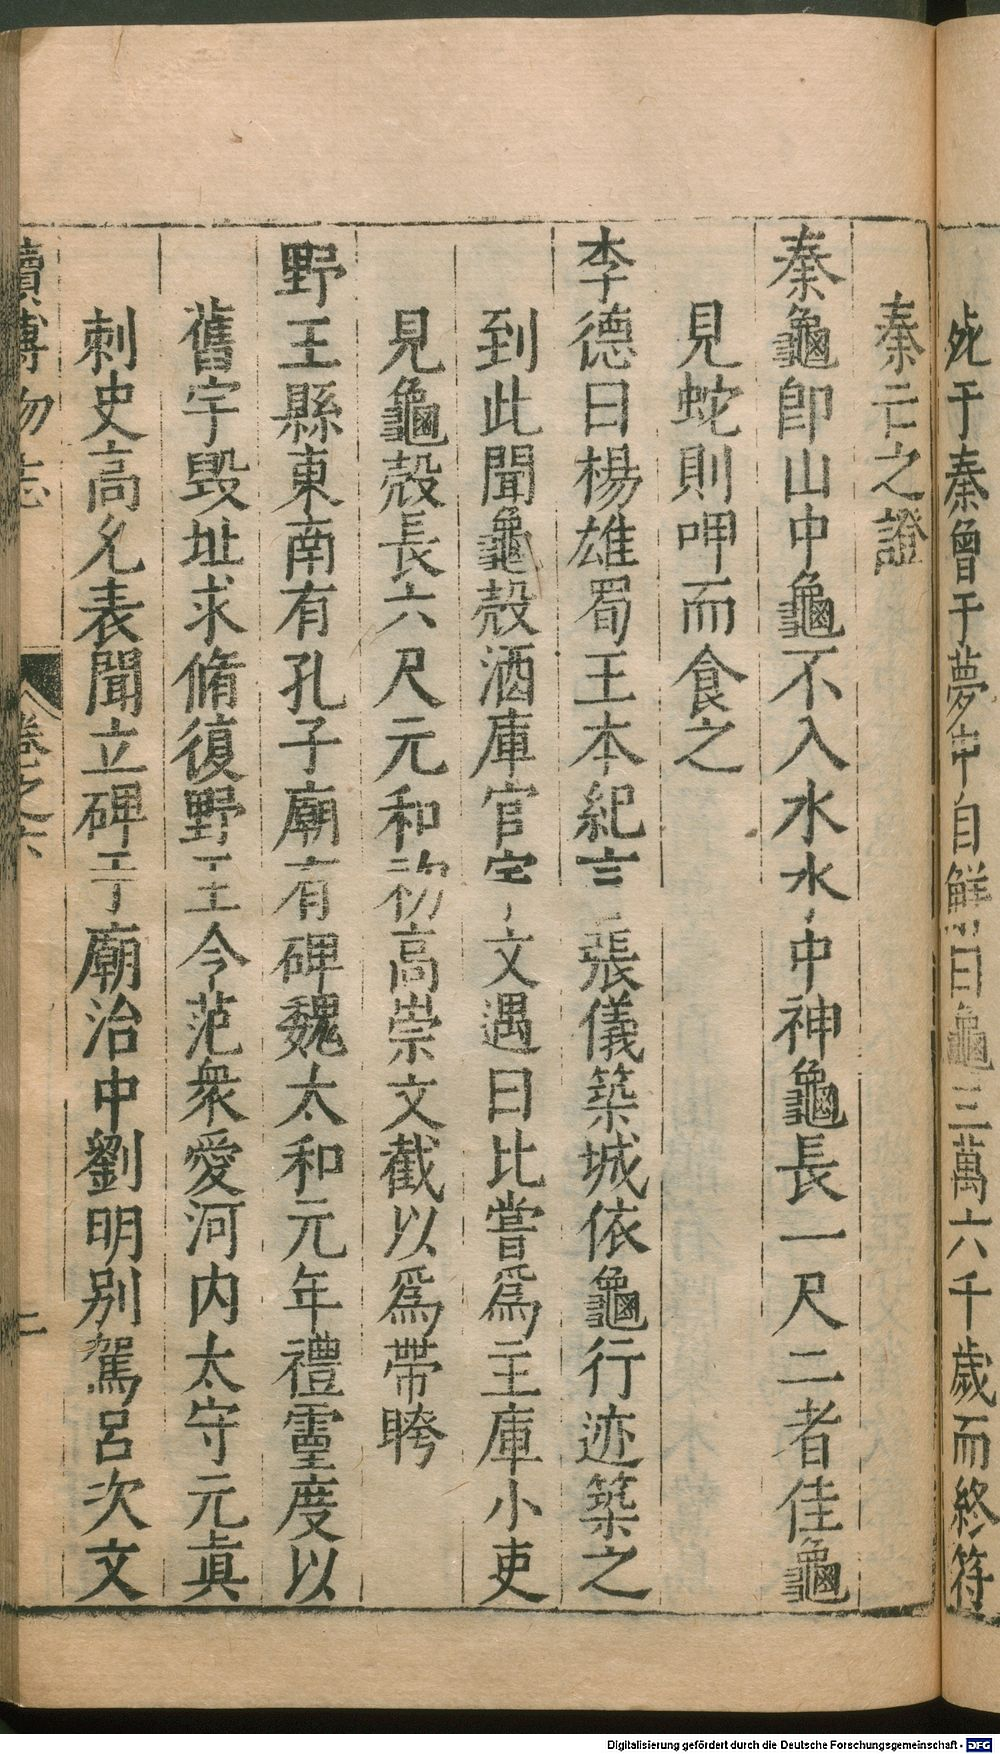 死于秦曾于夢中自解曰龜三萬六千歲而終符
秦亡之證
秦龜卽山中龜不入水水中神龜長一尺二者佳龜
見蛇則呷而食之
李德曰楊雄蜀王本紀言張儀築城依龜行迹築之
到此聞龜殼酒庫官宋文遇曰比嘗爲主庫小吏
見龜殼長六尺元和初高崇文截以爲帶胯
野王縣東南有孔子廟有碑魏太和元年禮靈度以
舊宇毀址求脩復野王令范衆愛河内太守元眞
刺史高允表聞立碑于廟治中劉明別駕呂次文
續博物志 卷之六 二
Digitalisierung gefördert durch die Deutsche Forschungsgemeinschaft - DFG